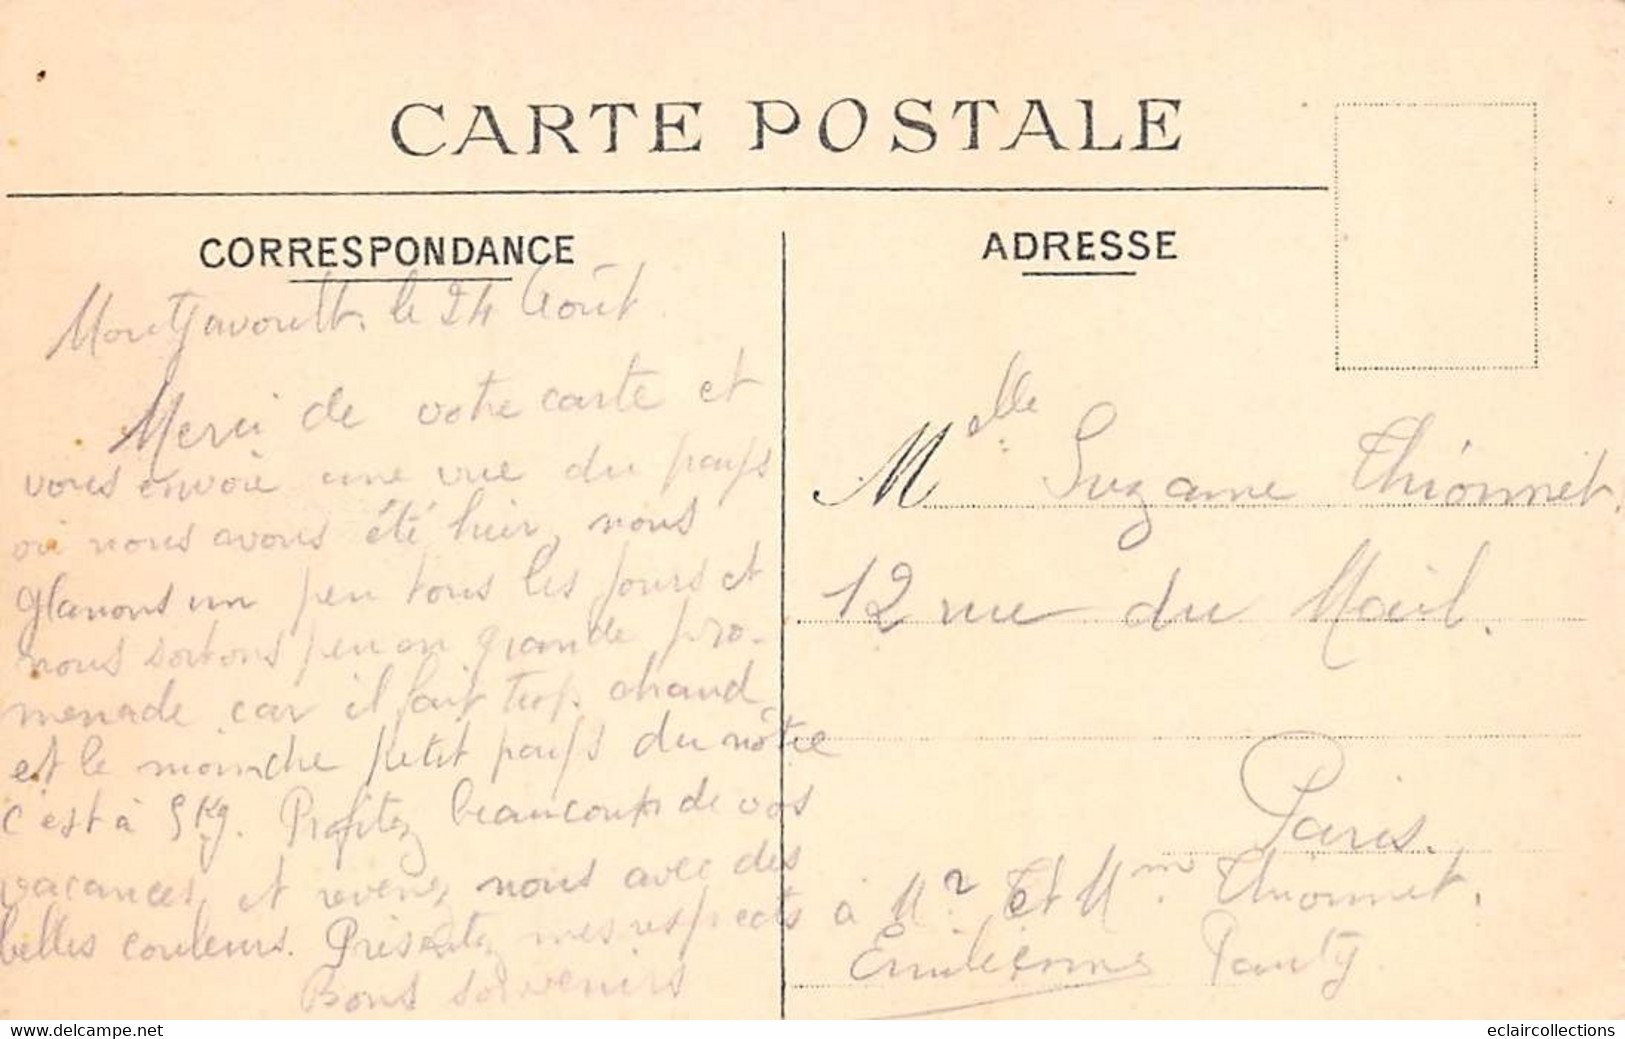 CARTE POSTALE
CORRESPONDANCE
Montjavoult, le 24 Août
Merci de votre carte et
vous envoie une vue du pays
où nous avons été hier, nous
glanons un peu tous les jours et
nous sortons peu en grande pro-
menade car il fait trop chaud
et le moindre petit pays du nôtre
c'est à 5 Kg. Profitez beaucoup de vos
vacances, et revenez nous avec des
belles couleurs. Présentez mes respects à Mr et Mm Thionnet.
Bons souvenirs
Emilienne
ADRESSE
Mlle Suzanne Thionnet.
12 rue du Mail.
Paris.
www.delcampe.net
eclaircollections